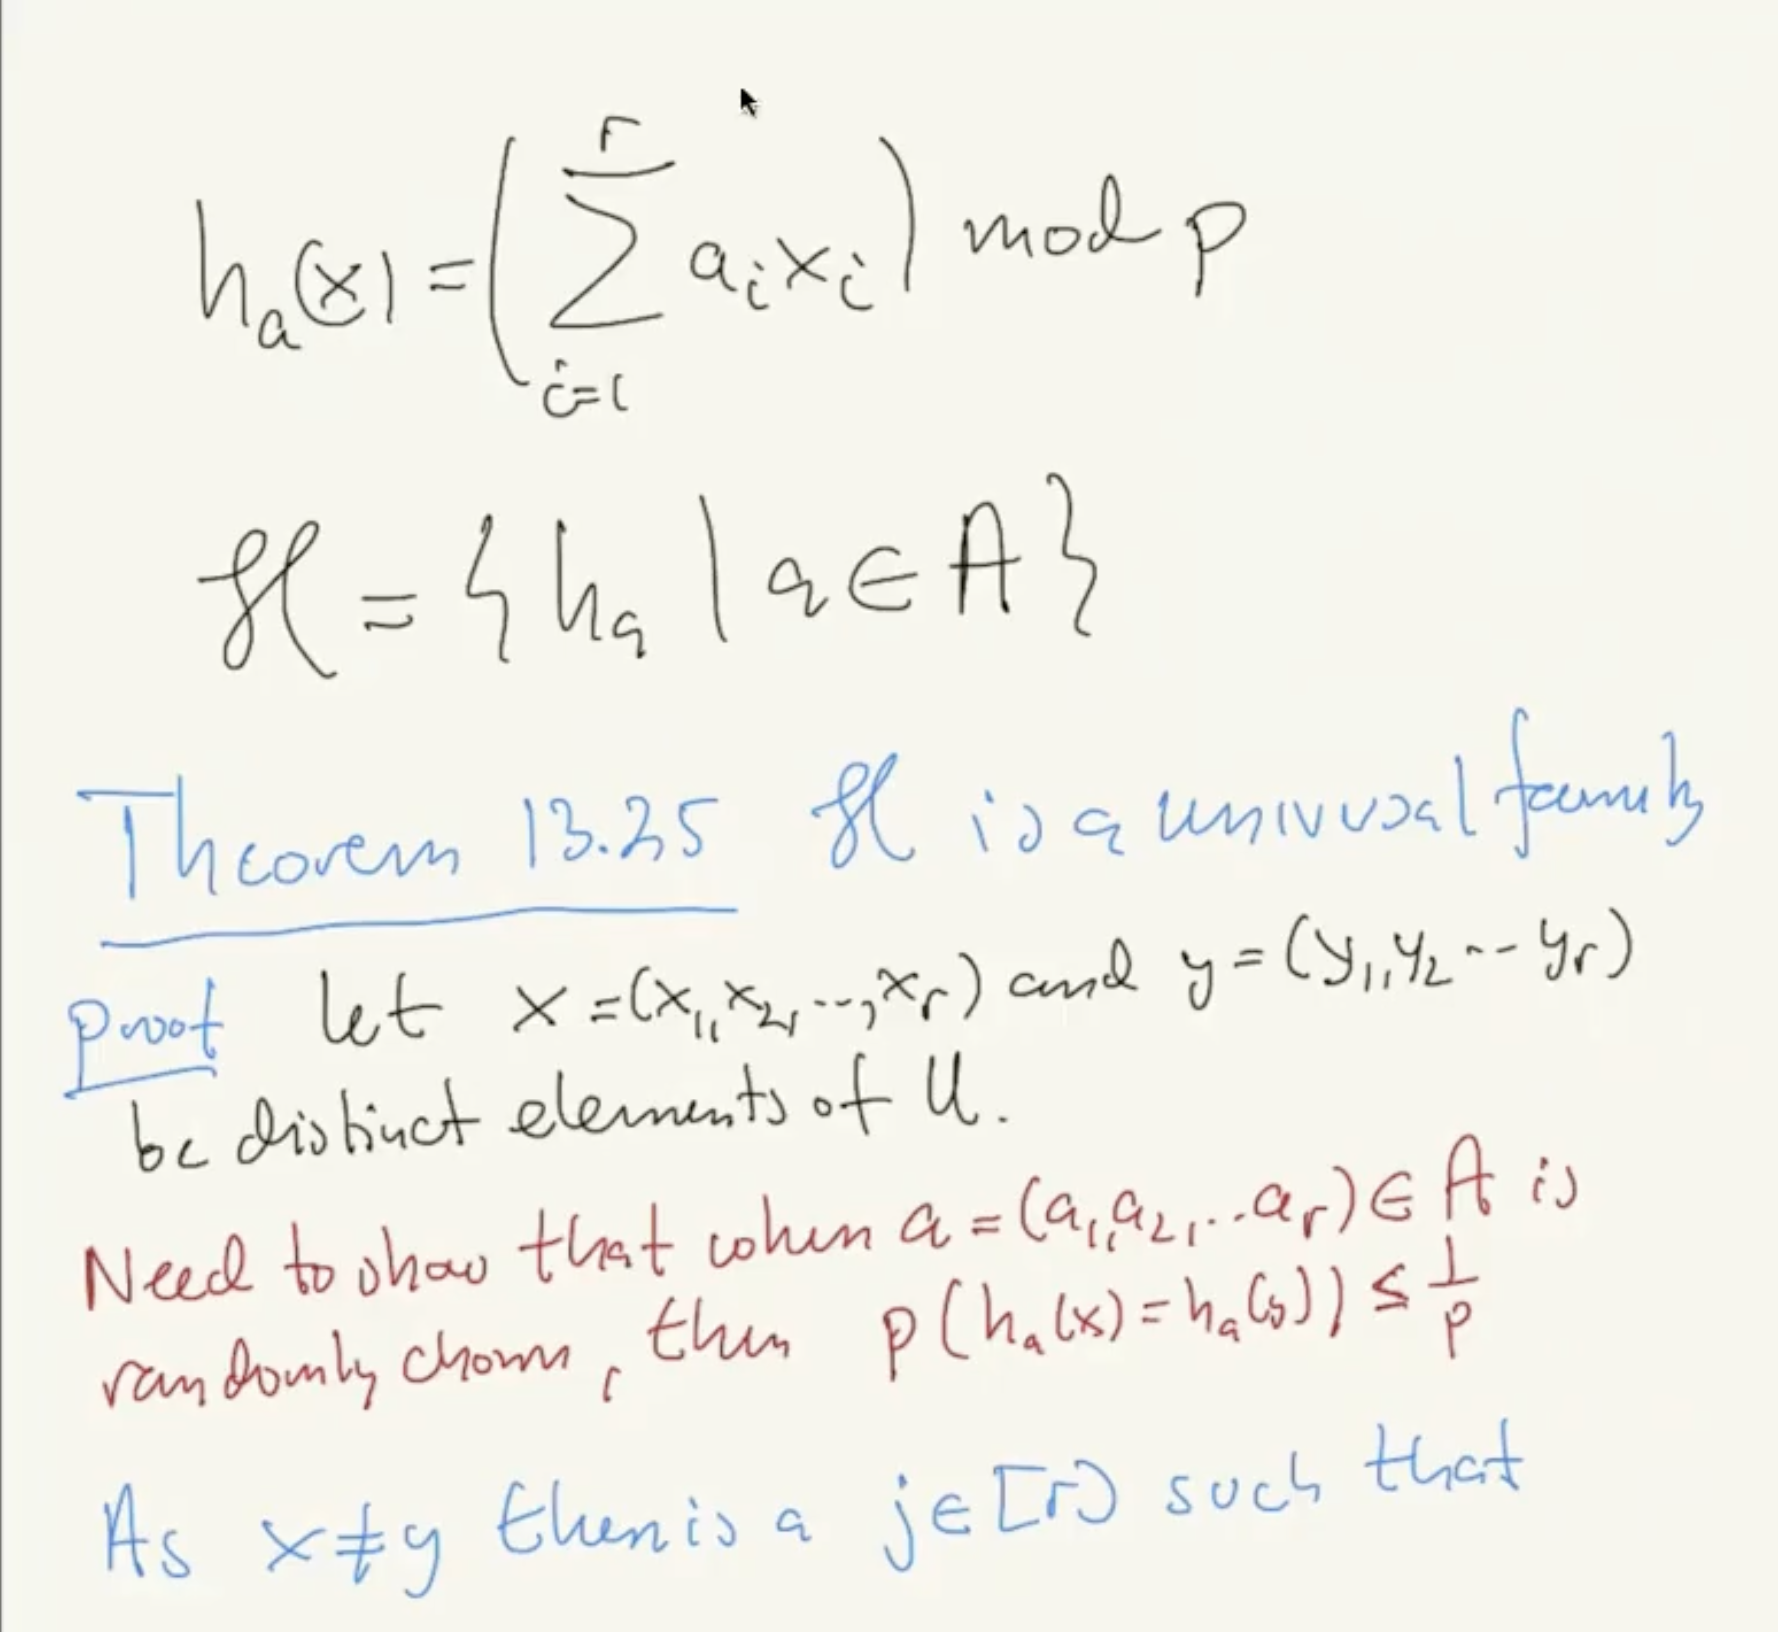 h_a(x) = (∑_{i=1}^{r} a_i x_i) mod p
ℋ = { h_a | a ∈ A }
Theorem 13.25 ℋ is a universal family
proof let x = (x_1, x_2, ..., x_r) and y = (y_1, y_2 -- y_r)
be distinct elements of U.
Need to show that when a = (a_1, a_2, .. a_r) ∈ A is
randomly chosen, then p(h_a(x) = h_a(y)) ≤ 1/p
As x ≠ y there is a j ∈ [r] such that